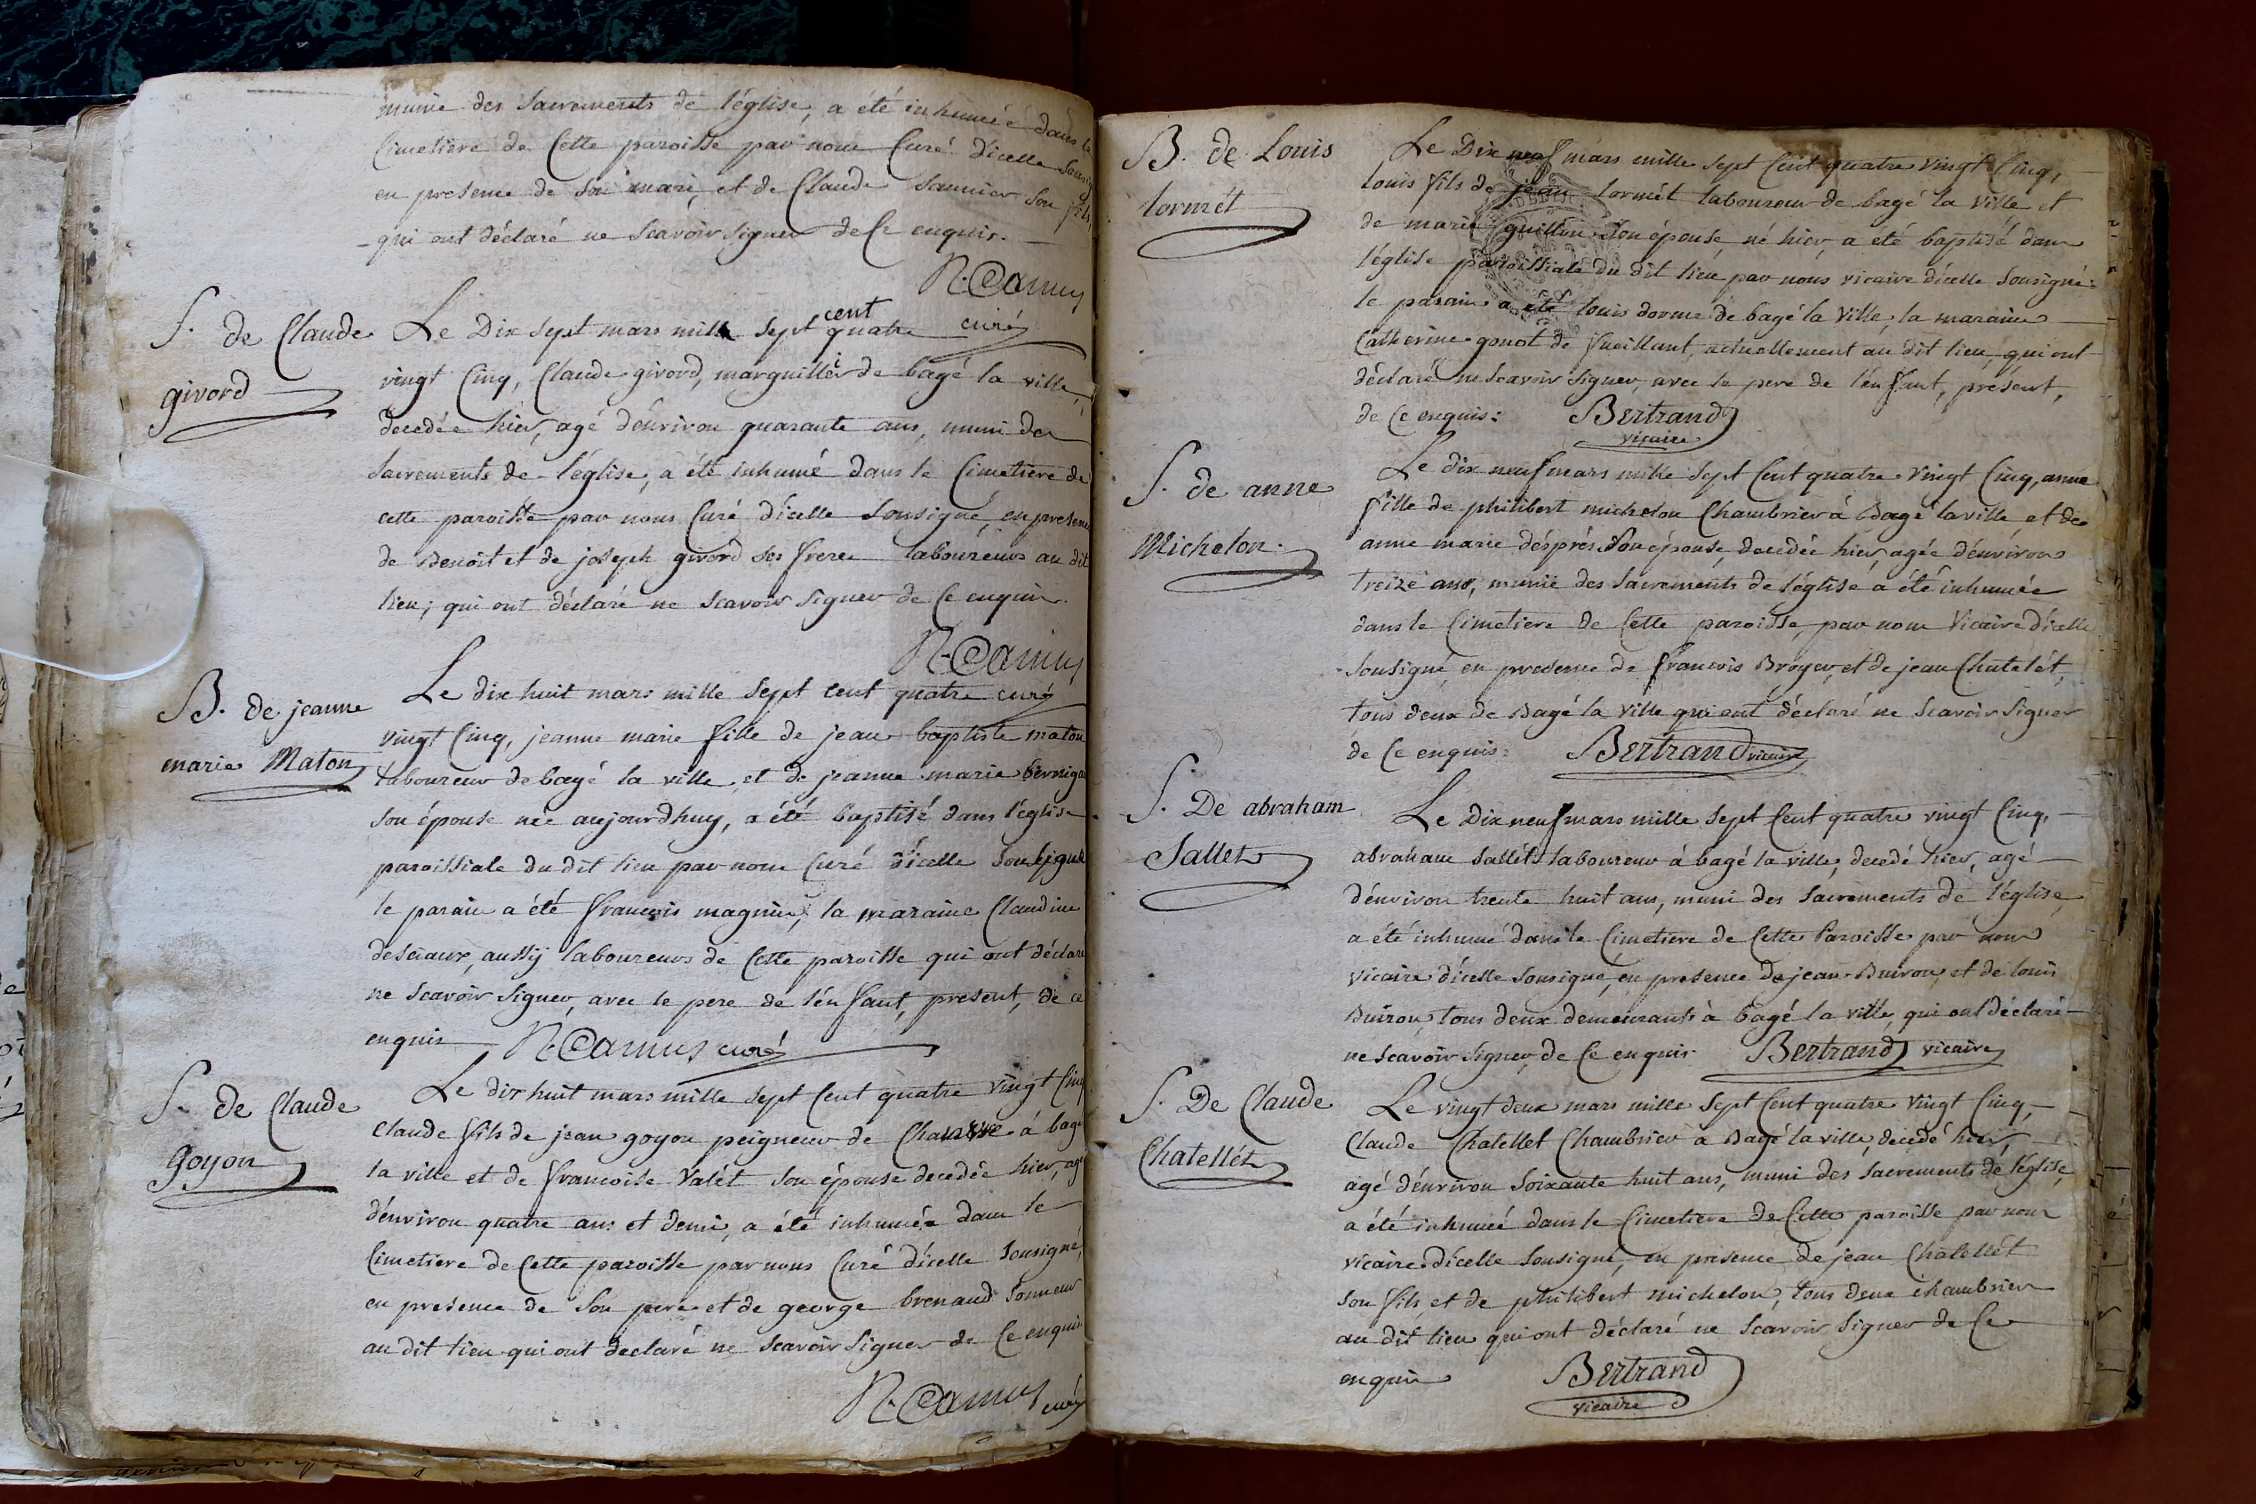 munie des sacrements de l'église, a été inhumée dans le
Cimetiere de Cette paroisse par nous Curé dicelle
en presence de son mari, et de Claude saunier son fils,
qui ont déclaré ne scavoir signer de Ce enquis.
N. Camus
curé
S. de Claude
givord
Le Dix sept mars mille sept cent quatre
vingt Cinq, Claude givord, marguillier de bagé la ville,
decedée hier, agé d'environ quarante ans, muni des
sacrements de l'église, a été inhumé dans le Cimetiere de
cette paroisse par nous Curé dicelle sousigné, en presence
de Benoit et de joseph givord ses freres laboureurs au dit
lieu; qui ont déclaré ne scavoir signer de Ce enquis.
N. Camus
curé
B. de jeanne
marie Maton
Le dix huit mars mille sept cent quatre
vingt Cinq, jeanne marie fille de jean baptiste maton
laboureur de bagé la ville, et de jeanne marie
son épouse née aujourdhuy, a été baptisé dans l'église
paroissiale du dit lieu par nous Curé dicelle sousigné
le parain a été francois magnin, la maraine Claudine
desciaux, aussy laboureurs de Cette paroisse qui ont déclaré
ne scavoir signer, avec le pere de l'enfant, present, de ce
enquis N. Camus curé
S. de Claude
goyon
Le dix huit mars mille sept Cent quatre vingt Cinq
Claude fils de jean goyon peigneur de Chanvre à bagé
la ville et de francoise Valét son épouse decedée hier, agé
d'environ quatre ans et demi, a été inhumée dans le
Cimetiere de Cette paroisse par nous Curé dicelle sousigné,
en presence de son pere et de george brenaud sonneur
au dit lieu qui ont declaré ne scavoir signer de Ce enquis
N. Camus curé
B. de Louis
lormét
Le Dix neuf mars mille sept Cent quatre vingt Cinq,
louis fils de jean lormét laboureur de bagé la ville et
de marie guillin son épouse né hier, a été baptisé dans
l'église paroissiale du dit lieu par nous vicaire dicelle sousigné:
le parain a été louis dorme de bagé la ville, la maraine
Catherine gonot de fueillant, actuellement au dit lieu, qui ont
déclaré ne scavoir signer, avec le pere de l'enfant, présent,
de Ce enquis: Bertrand
vicaire
S. de anne
Michelon.
Le dix neuf mars mille sept Cent quatre vingt Cinq, anne
fille de philibert michelon Chambrier à Bagé la ville et de
anne marie désprés son épouse, decedée hier, agée d'environ
treize ans, munie des sacrements de l'église a été inhumée
dans le Cimetiere de Cette paroisse, par nous Vicaire dicelle
sousigné, en presence de francois Broyer, et de jean Chatelét,
tous deux de Bagé la ville qui ont déclaré ne scavoir signer
de Ce enquis: Bertrand vicaire
S. De abraham
Sallet
Le Dix neuf mars mille sept Cent quatre vingt Cinq,
abraham sallét laboureur à bagé la ville, decedé hier, agé
d'environ trente huit ans, muni des sacrements de l'église,
a été inhumé dans le Cimetiere de Cette Paroisse par nous
vicaire dicelle sousigné, en presence de jean Buiron, et de louis
Buiron, tous deux demeurants à bagé la ville, qui ont déclaré
ne scavoir signer, de Ce enquis. Bertrand vicaire
S. De Claude
Chatellét
Le vingt deux mars mille sept Cent quatre vingt Cinq,
Claude Chatellet Chambrier à Bagé la ville, decedé hier,
agé d'environ soixante huit ans, muni des sacrements de l'église,
a été inhumeé dans le Cimetiere de Cette paroisse par nous
vicaire dicelle sousigné, en presence de jean Chatellét
son fils et de philibert michelon, tous deux chambrier
au dit lieu qui ont déclaré ne scavoir signer de Ce
enquis Bertrand
vicaire